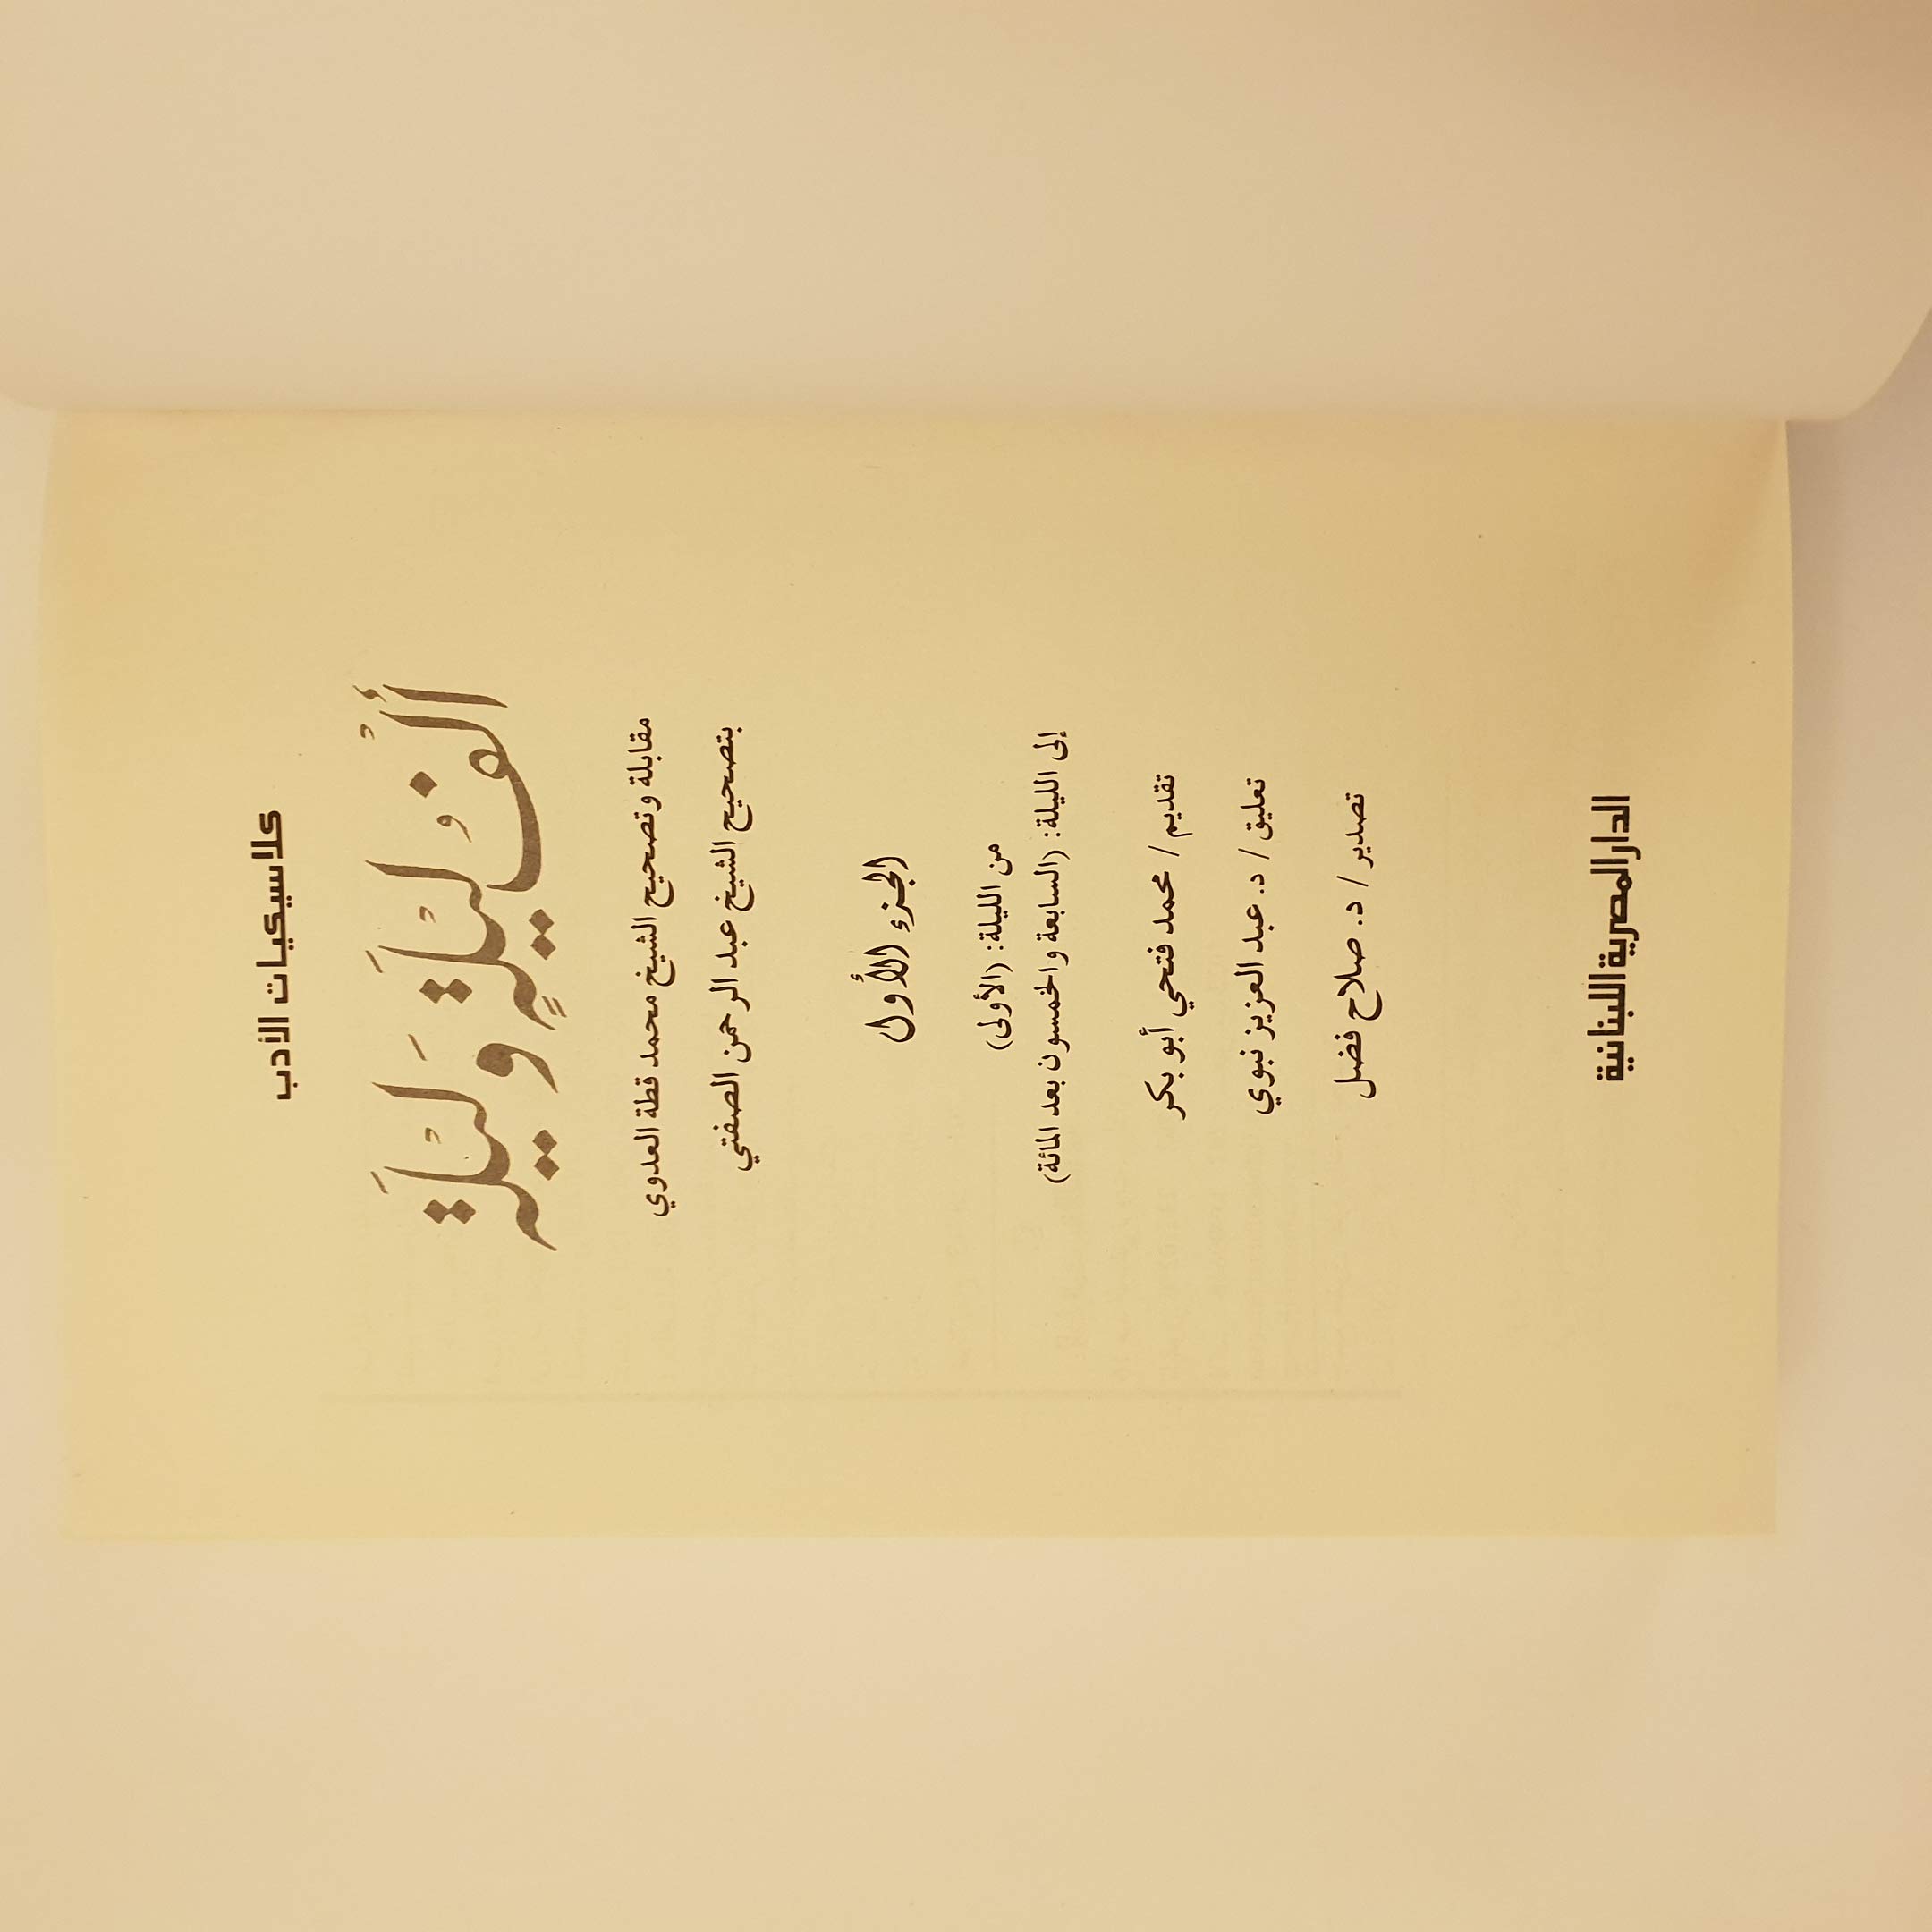 كلاسيكيات الأدب
أَلْفُ لَيْلَةٍ وَلَيْلَة
مقابلة وتصحيح الشيخ محمد قطة العدوي
بتصحيح الشيخ عبد الرحمن الصفتي
الجزء الأول
من الليلة: (الأولى)
إلى الليلة: (السابعة والخمسون بعد المائة)
تقديم / محمد فتحي أبو بكر
تعليق / د. عبد العزيز نبوي
تصدير / د. صلاح فضل
الدار المصرية اللبنانية